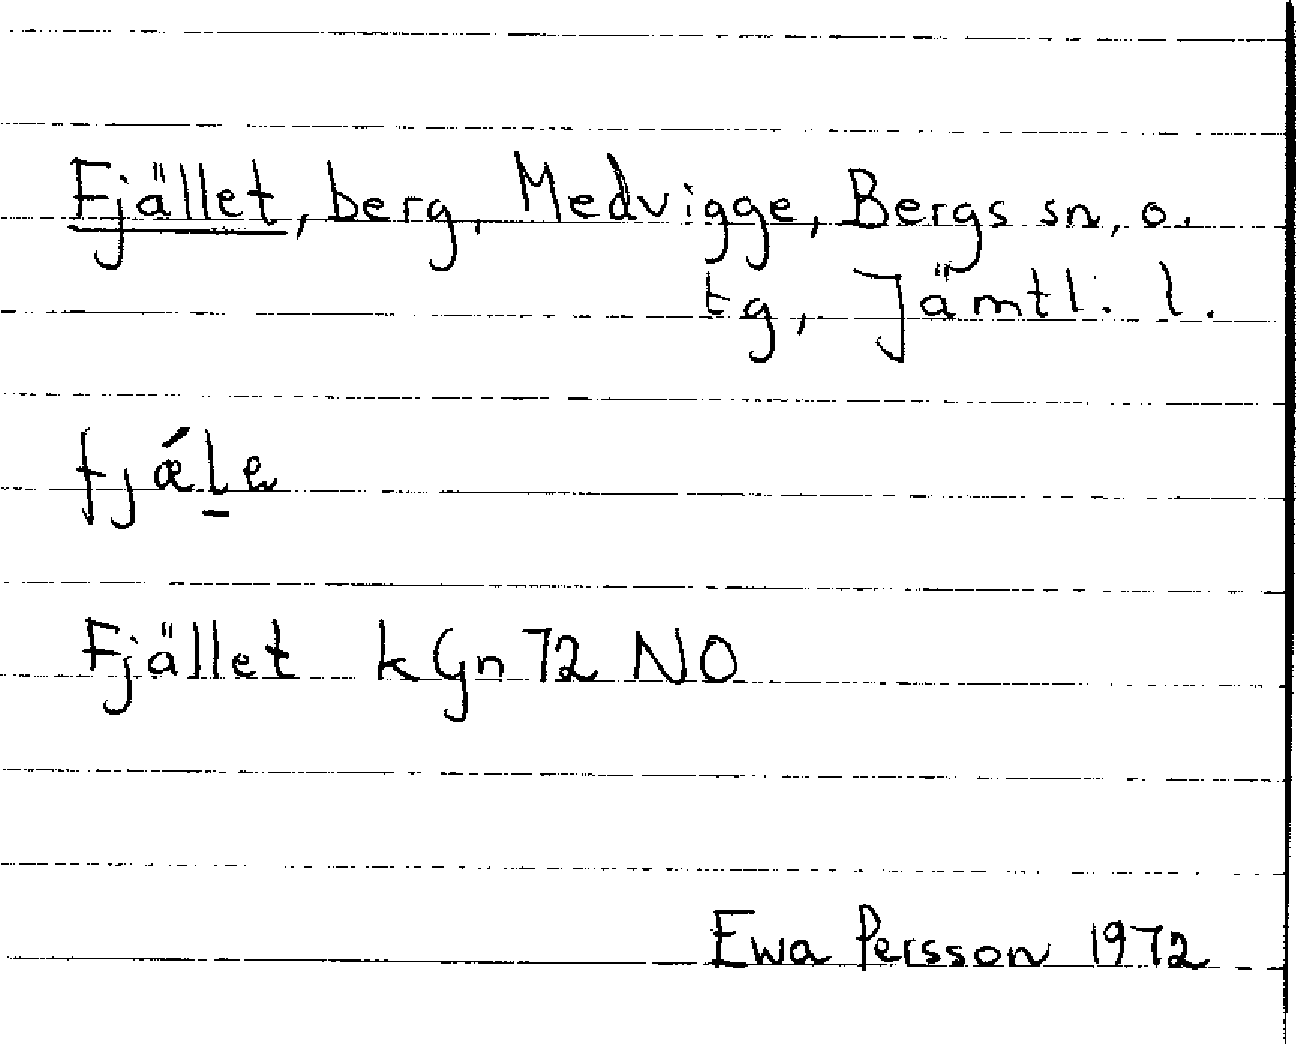 Fjället, berg, Medvigge, Bergs sn, o.
tg, Jämtl. l.
fjǽl̲e
Fjället kGn 72 NO
Ewa Persson 1972